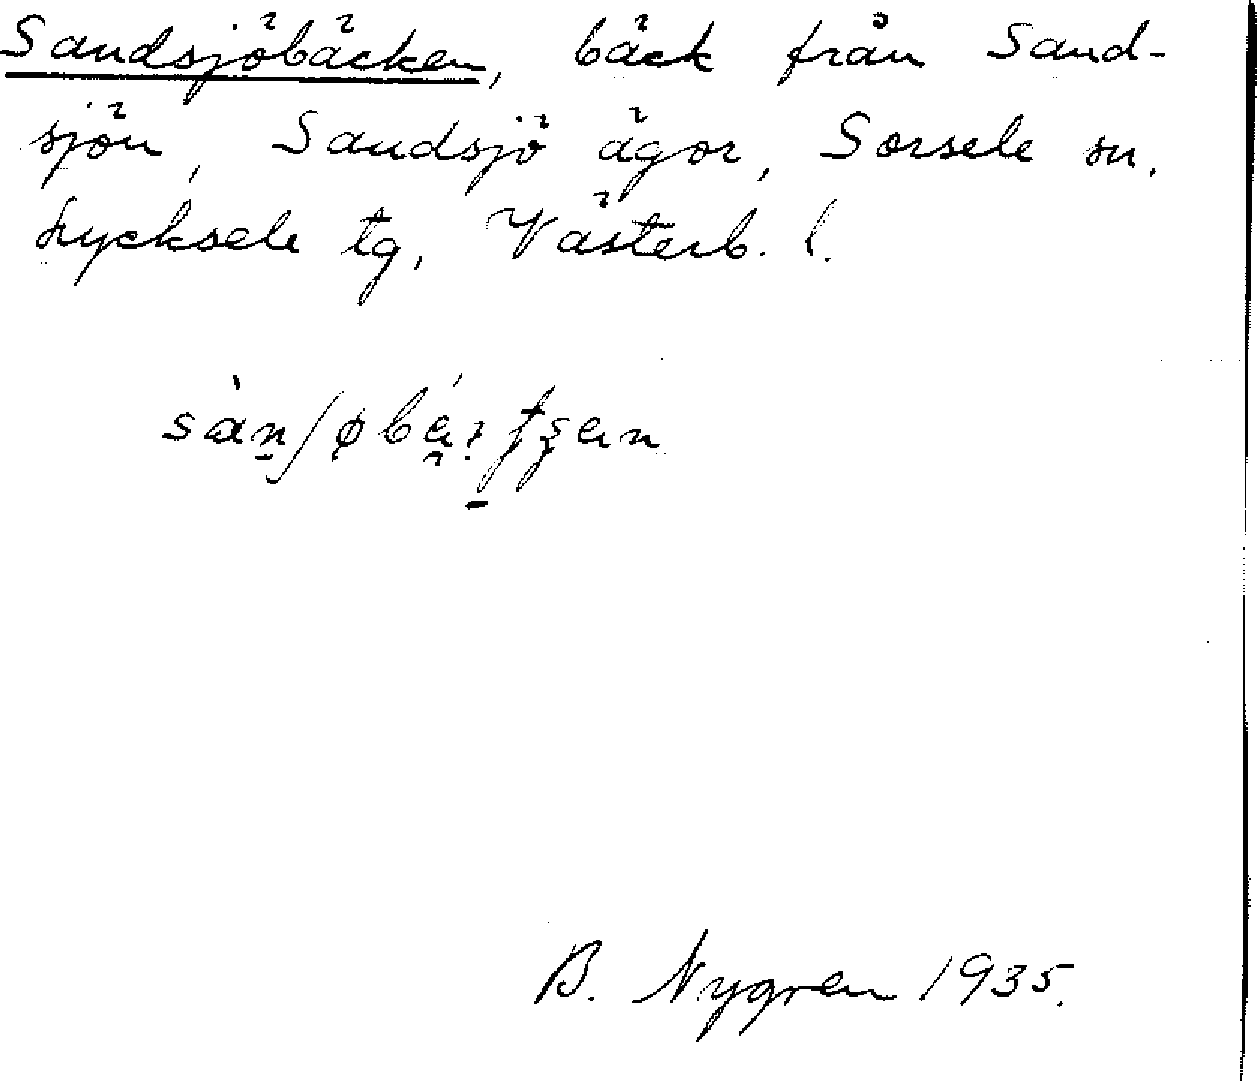 Sandsjöbäcken, bäck från Sand-
sjön, Sandsjö ägor, Sorsele sn,
Lycksele tg, Västerb. l.
B. Nygren 1935.